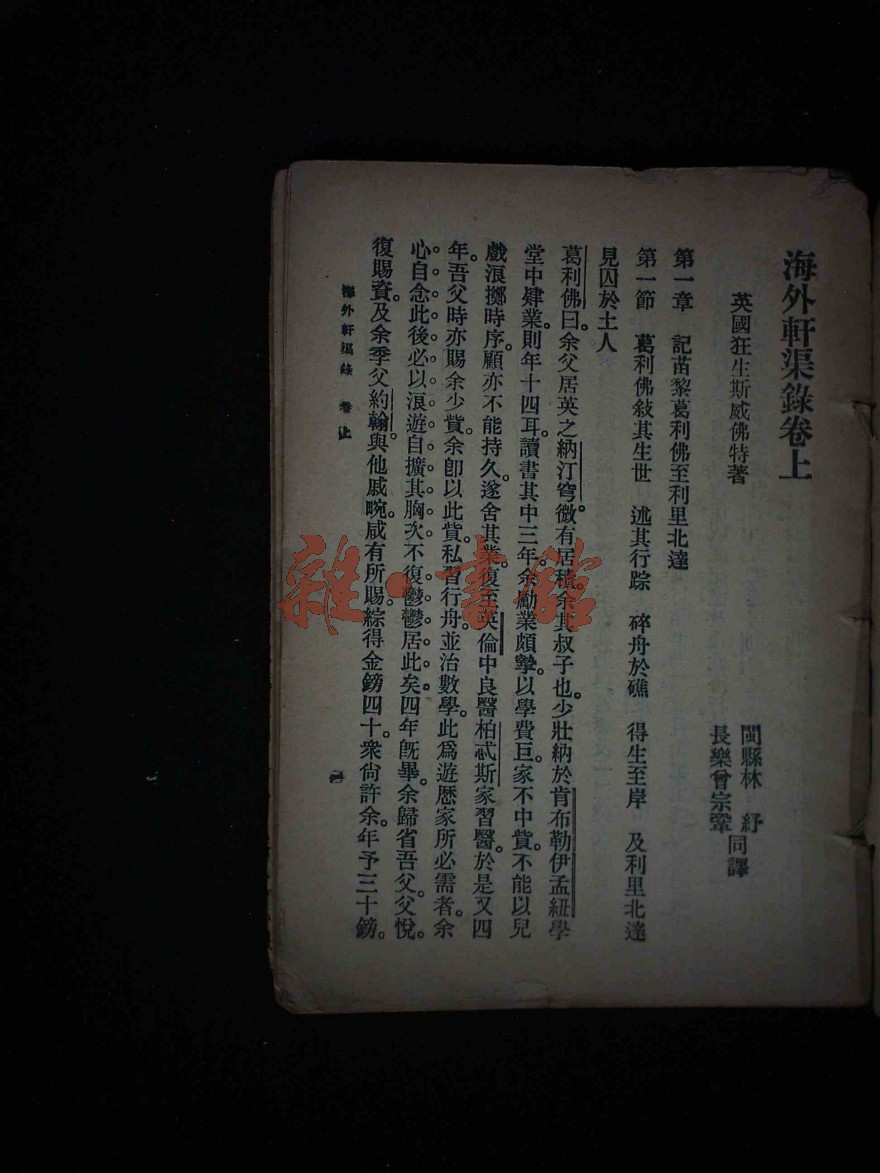 海外軒渠錄卷上
英國狂生斯威佛特著
閩縣林 紓
長樂曾宗鞏
同譯
第一章 記苗黎葛利佛至利里北達
第一節 葛利佛敍其生世 述其行踪 碎舟於礁 得生至岸 及利里北達
見囚於土人
葛利佛曰。余父居英之納汀穹。微有居積。余其叔子也。少壯納於肯布勒伊孟紐學
堂中肄業。則年十四耳。讀書其中三年。余勵業頗摯。以學費巨。家不中貲。不能以兒
戲浪擲時序。顧亦不能持久。遂舍其業。復至英倫中良醫柏忒斯家習醫。於是又四
年。吾父時亦賜余少貲。余卽以此貲。私習行舟。並治數學。此爲遊歷家所必需者。余
心自念此後必以浪遊自擴其胸次。不復鬱鬱居此矣。四年旣畢。余歸省吾父。父悅。
復賜資。及余季父約翰。與他戚畹。咸有所賜。綜得金鎊四十。衆尙許余。年予三十鎊。
海外軒渠錄 卷上
雜·書館